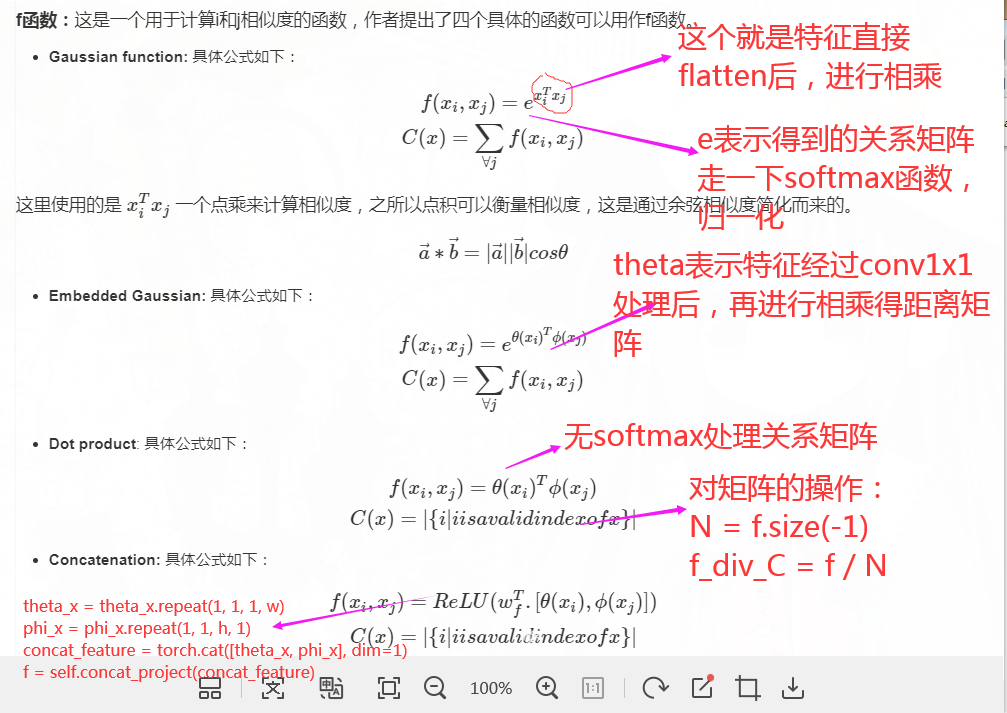 f函数：这是一个用于计算i和j相似度的函数，作者提出了四个具体的函数可以用作f函数。
这个就是特征直接
flatten后，进行相乘
• Gaussian function: 具体公式如下：
f(xᵢ, xⱼ) = e^{xᵢᵀxⱼ}
C(x) = ∑_{∀j} f(xᵢ, xⱼ)
e表示得到的关系矩阵
走一下softmax函数，
归一化
这里使用的是 xᵢᵀxⱼ 一个点乘来计算相似度，之所以点积可以衡量相似度，这是通过余弦相似度简化而来的。
a⃗ ∗ b⃗ = |a⃗||b⃗|cosθ
theta表示特征经过conv1x1
处理后，再进行相乘得距离矩
阵
• Embedded Gaussian: 具体公式如下：
f(xᵢ, xⱼ) = e^{θ(xᵢ)ᵀϕ(xⱼ)}
C(x) = ∑_{∀j} f(xᵢ, xⱼ)
• Dot product: 具体公式如下：
无softmax处理关系矩阵
f(xᵢ, xⱼ) = θ(xᵢ)ᵀϕ(xⱼ)
C(x) = |{i|iisavalidindexofx}|
对矩阵的操作：
N = f.size(-1)
f_div_C = f / N
• Concatenation: 具体公式如下：
f(xᵢ, xⱼ) = ReLU(w_fᵀ.[θ(xᵢ), ϕ(xⱼ)])
C(x) = |{i|iisavalidindexofx}|
theta_x = theta_x.repeat(1, 1, 1, w)
phi_x = phi_x.repeat(1, 1, h, 1)
concat_feature = torch.cat([theta_x, phi_x], dim=1)
f = self.concat_project(concat_feature)
100%
1:1